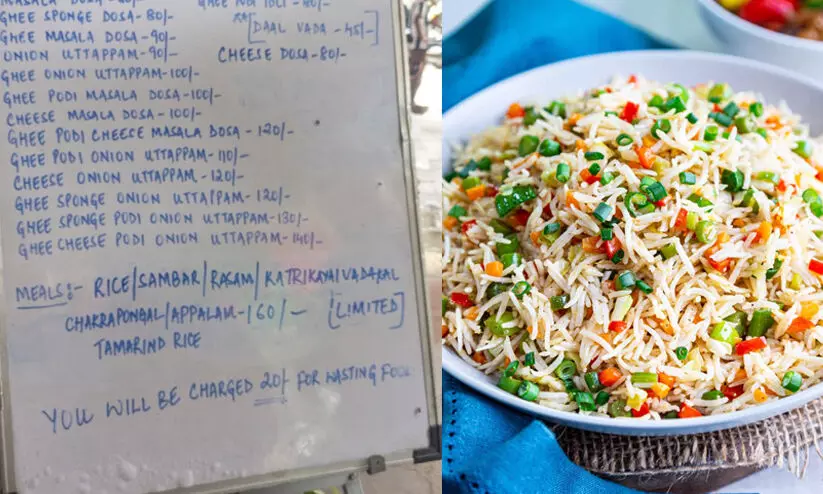 MASALA DOSA-80/-
GHEE PODI IDLI-80/-
GHEE SPONGE DOSA-80/-
[DAAL VADA-45/-]
GHEE MASALA DOSA-90/-
ONION UTTAPPAM-90/-
CHEESE DOSA-80/-
GHEE ONION UTTAPPAM-100/-
GHEE PODI MASALA DOSA-100/-
CHEESE MASALA DOSA-100/-
GHEE PODI CHEESE MASALA DOSA-120/-
GHEE PODI ONION UTTAPPAM-110/-
CHEESE ONION UTTAPPAM-120/-
GHEE SPONGE ONION UTTAPPAM-120/-
GHEE SPONGE PODI ONION UTTAPPAM-130/-
GHEE CHEESE PODI ONION UTTAPPAM-140/-
MEALS:- RICE/SAMBAR/RASAM/KATRIKAYAIVADAKAL
CHAKRAPONGAL/APPALAM-160/- [LIMITED]
TAMARIND RICE
YOU WILL BE CHARGED 20/- FOR WASTING FOOD